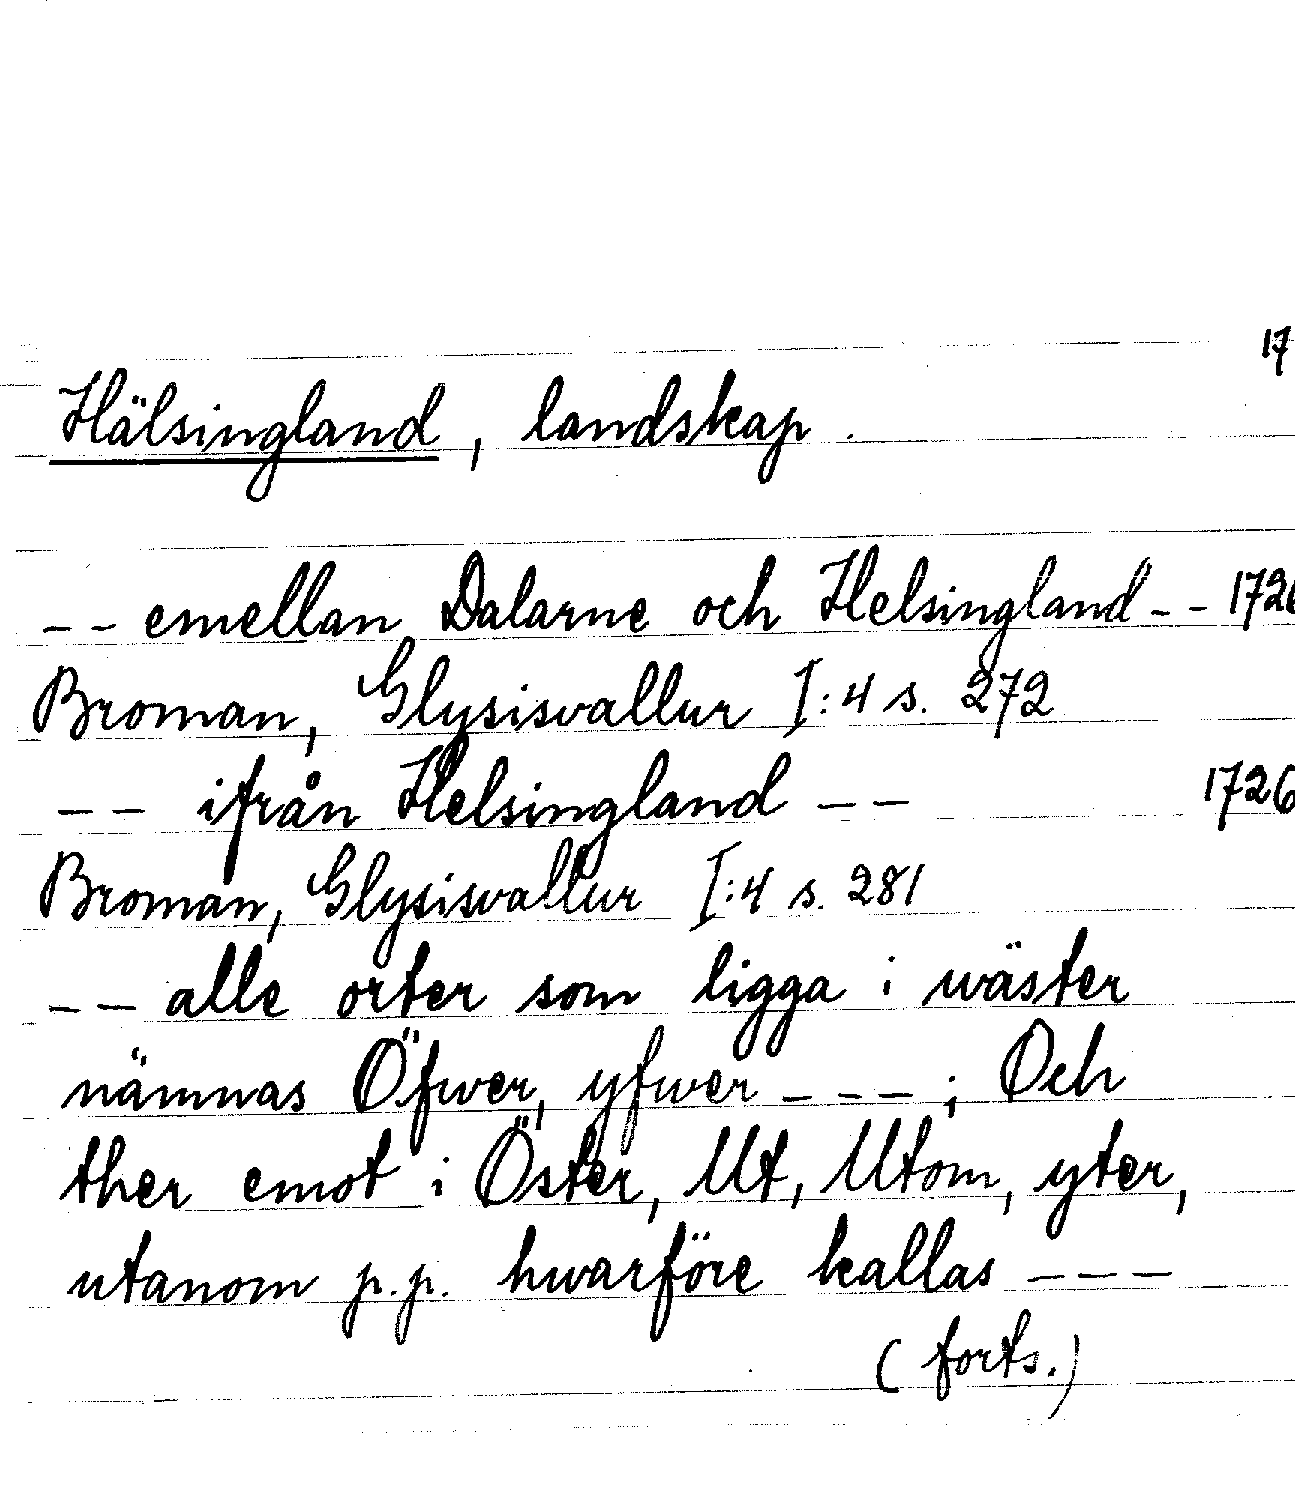 17
Hälsingland, landskap.
-- emellan Dalarne och Helsingland -- 1726
Broman, Glysisvallur I:4 s. 272
-- ifrån Helsingland -- 1726
Broman, Glysisvallur I:4 s. 281
-- alle orter som ligga i wäster
nämnas Öfwer, yfwer ---; Och
ther emot i Öster, Ut, Utom, yter,
utanom p.p. hwarföre kallas ---
(forts.)